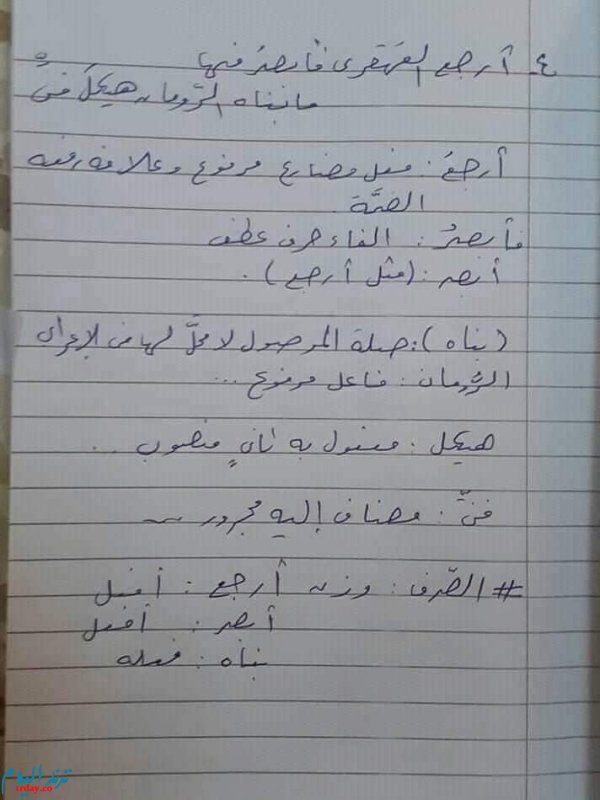 ٤- أرجع القهقرى فأبصرُ فيها
ما بناه الرّومان هيكلَ فنٍّ
أرجعُ: فعل مضارع مرفوع وعلامة رفعه
الضمَّة
فأبصرُ: الفاء حرف عطف
أبصر: (مثل أرجع).
(بناه): صلة الموصول لا محلَّ لها من الإعراب
الرُّومان: فاعل مرفوع ...
هيكل: مفعول به ثانٍ منصوب ...
فنٍّ: مضاف إليه مجرور
# الصّرف: وزن أرجع: أفعل
أبصر: أفعل
بناه: فعله
ترند اليوم
trday.co